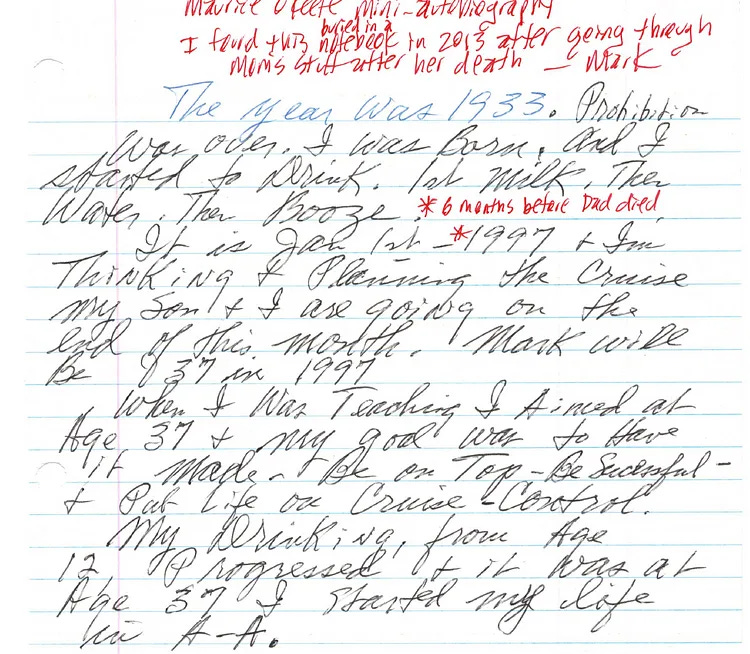 Maurice O'Keefe mini-autobiography
buried in a
I found this notebook in 2013 after going through
Mom's stuff after her death — Mark
The year was 1933. Prohibition
Was over. I was Born. And I
started to Drink. 1st milk. Then
Water. Then Booze. * 6 months before Dad died
It is Jan 1st - *1997 & I'm
Thinking & Planning the Cruise
my Son & I are going on the
end of this month. Mark will
Be 37 in 1997
When I Was Teaching I Aimed at
Age 37 & my goal was to Have
it made - Be on Top - Be Sucessful -
& Put Life on Cruise-Control.
My Drinking, from Age
12 Progressed & it was at
Age 37 I started my life
in A-A.